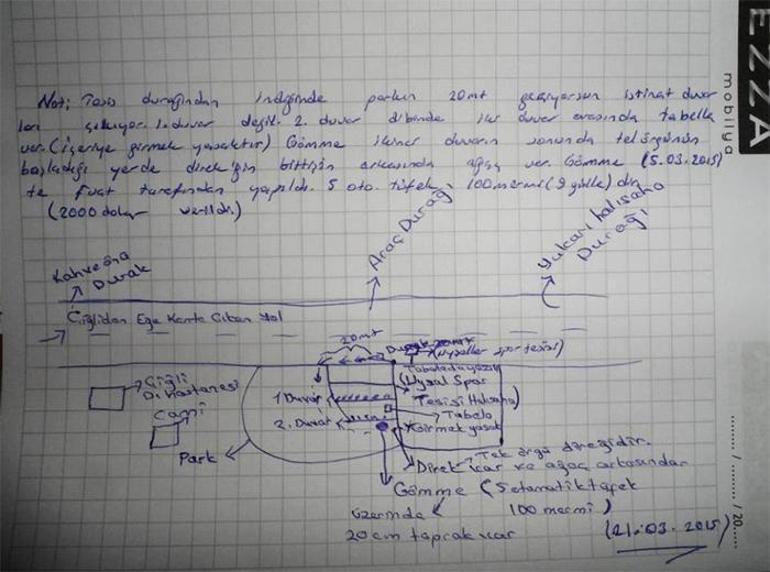 EZZA
mobilya
Not; Tesis durağından indiğinde parkın 20mt geçiyorsun istinat duvar
ları çıkıyor. 1. duvar değil. 2. duvar dibinde iki duvar arasında tabella
var. (içeriye girmek yasaktır) Gömme ikinci duvarın sonunda tel örgünün
başladığı yerde direk'ğin bittiğin arkasında ağaç var. Gömme (5.03.2015)
te fuat tarafından yapıldı. 5 oto. tüfek, 100 mermi (9 gülle) din
(2000 dolar verildi.)
Kahveönü Durak
Araç Durağı
Yukarı halısaha Durağı
Çiğliden Ege Kente Çıkan Yol
20mt
Durak 20mt
(uysallar spor tesisi)
Çiğli
Di.Hastanesi
Cami
Park
1. Duvar
2. Duvar
Tabelada yazan
(Uysal Spor
Tesisi Halısaha)
Tabela
Girmek yasak
Direk Tek örgü direğidir.
var ve ağaç arkasından
Gömme (5 otomatik tüfek
100 mermi)
üzerinde
20 cm toprak var
(21.03.2015)
........ / ........ / 20....